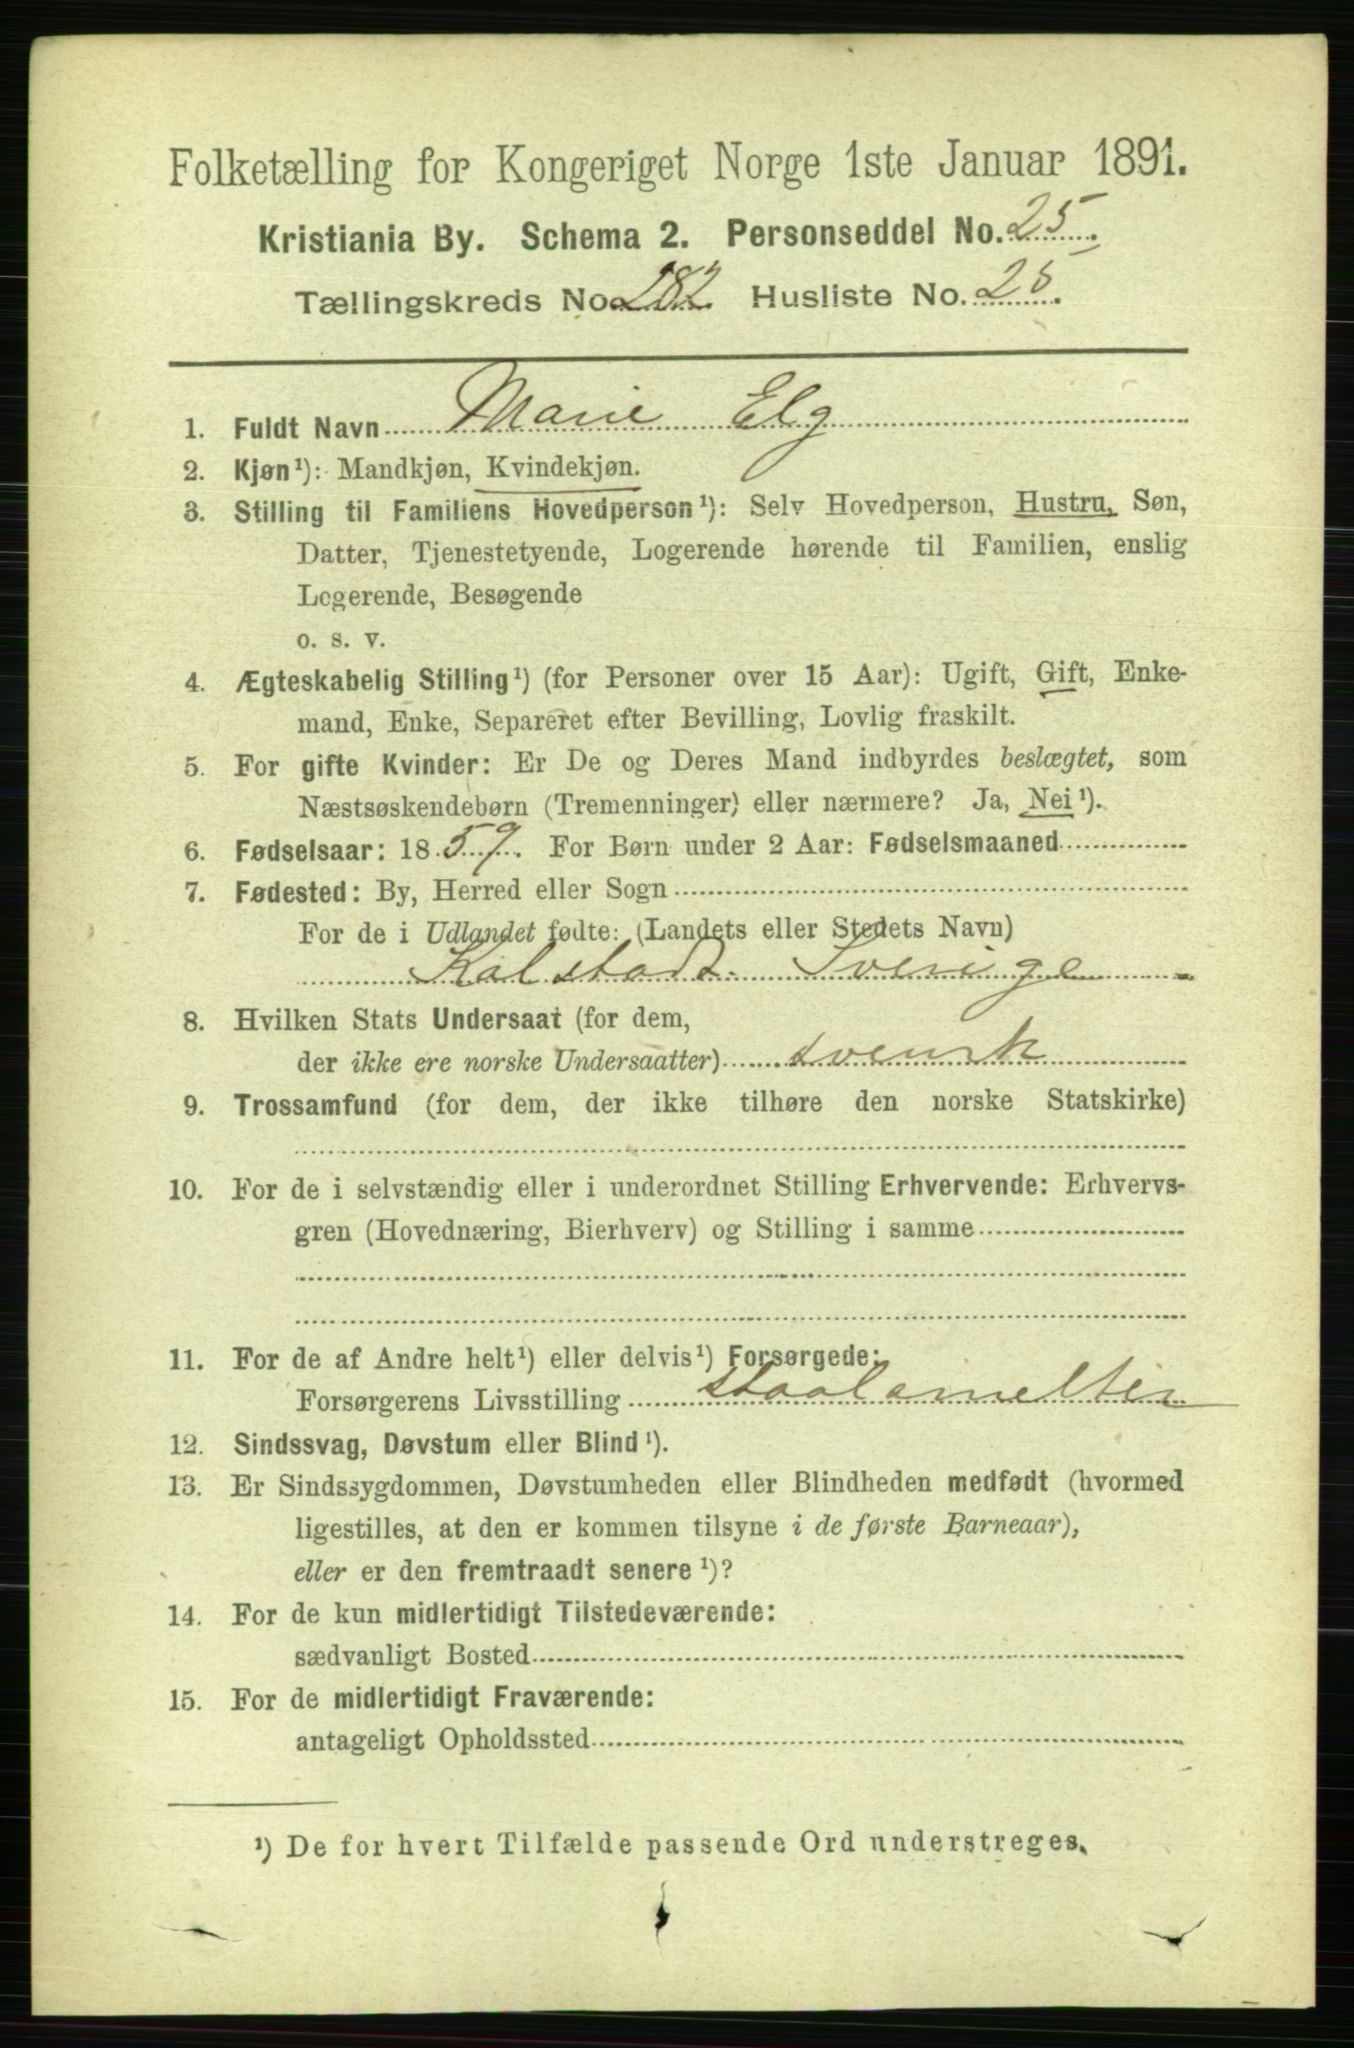 Folketælling for Kongeriget Norge 1ste Januar 1891.
Kristiania By. Schema 2. Personseddel No. 25.
Tællingskreds No. 282. Husliste No. 25.
1. Fuldt Navn Marie Elg
2. Kjøn¹): Mandkjøn, Kvindekjøn.
3. Stilling til Familiens Hovedperson¹): Selv Hovedperson, Hustru, Søn,
Datter, Tjenestetyende, Logerende hørende til Familien, enslig
Logerende, Besøgende
o. s. v.
4. Ægteskabelig Stilling¹) (for Personer over 15 Aar): Ugift, Gift, Enke-
mand, Enke, Separeret efter Bevilling, Lovlig fraskilt.
5. For gifte Kvinder: Er De og Deres Mand indbyrdes beslægtet, som
Næstsøskendebørn (Tremenninger) eller nærmere? Ja, Nei¹).
6. Fødselsaar: 1859. For Børn under 2 Aar: Fødselsmaaned
7. Fødested: By, Herred eller Sogn
For de i Udlandet fødte: (Landets eller Stedets Navn)
Kalstad Sverige
8. Hvilken Stats Undersaat (for dem,
der ikke ere norske Undersaatter) svensk
9. Trossamfund (for dem, der ikke tilhøre den norske Statskirke)
10. For de i selvstændig eller i underordnet Stilling Erhvervende: Erhvervs-
gren (Hovednæring, Bierhverv) og Stilling i samme
11. For de af Andre helt¹) eller delvis¹) Forsørgede:
Forsørgerens Livsstilling staalsmelter
12. Sindssvag, Døvstum eller Blind¹).
13. Er Sindssygdommen, Døvstumheden eller Blindheden medfødt (hvormed
ligestilles, at den er kommen tilsyne i de første Barneaar),
eller er den fremtraadt senere¹)?
14. For de kun midlertidigt Tilstedeværende:
sædvanligt Bosted
15. For de midlertidigt Fraværende:
antageligt Opholdssted
¹) De for hvert Tilfælde passende Ord understreges.